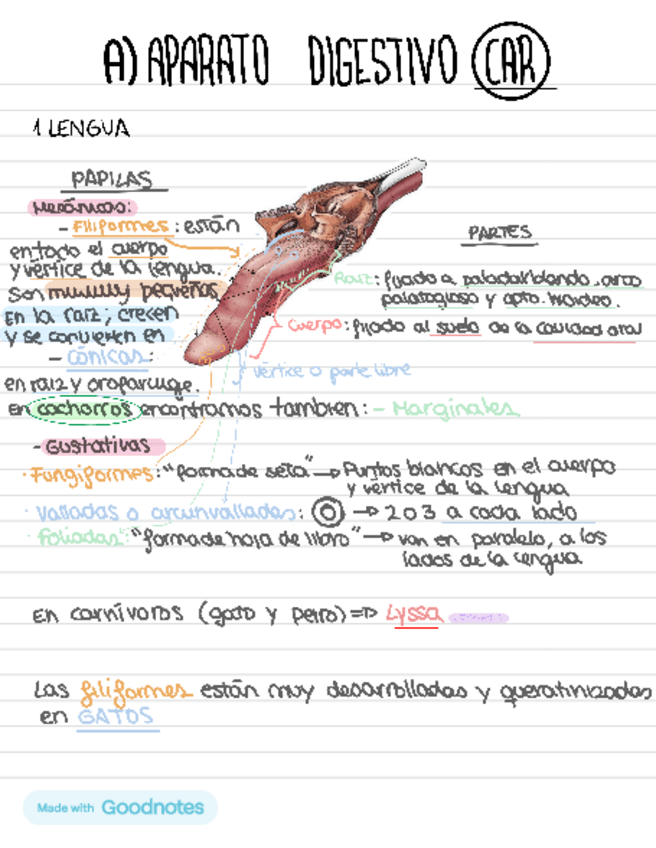 A) APARATO DIGESTIVO CAR
1 LENGUA
PAPILAS
Mecánicas:
- Filiformes: están
en todo el cuerpo
y vértice de la lengua.
Son muuuuy pequeñas
en la raíz; crecen
y se convierten en
- Cónicas:
en raíz y orofaringe.
en cachorros encontramos tambien: - Marginales
PARTES
Raíz: fijado a paladar blando, arco
palatogloso y apto. hioideo.
Cuerpo: fijado al suelo de la cavidad oral
Vértice o parte libre
- Gustativas
· Fungiformes: "forma de seta" → Puntos blancos en el cuerpo
y vértice de la lengua
· Valladas o circunvalladas: → 2 o 3 a cada lado
· Foliadas: "forma de hoja de libro" → van en paralelo, a los
lados de la lengua
En carnívoros (gato y perro) => Lyssa
Las filiformes están muy desarrolladas y queratinizadas
en GATOS
Made with Goodnotes